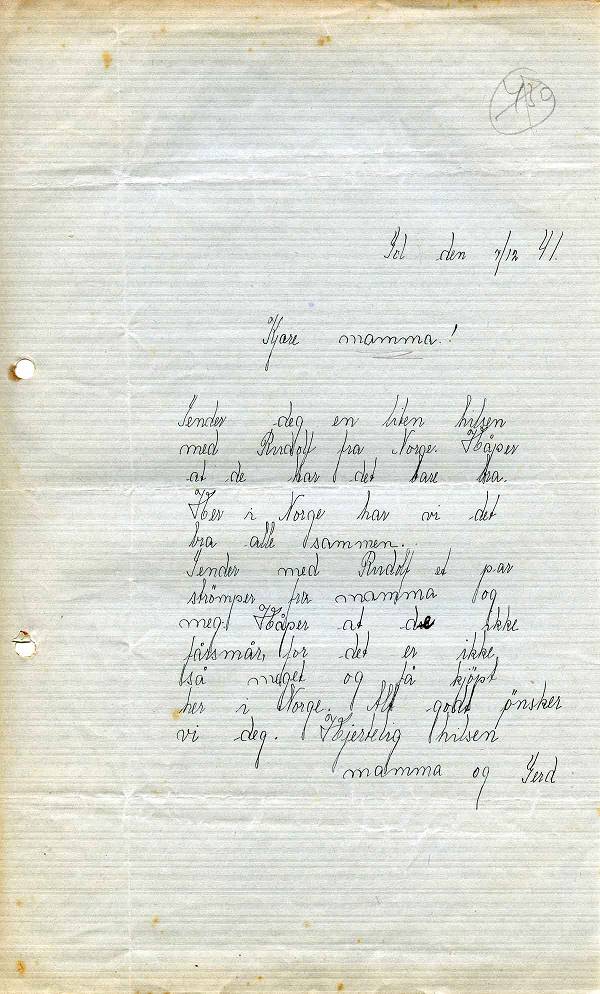 480
Gol den 7/12 41.
Kjære mamma.!
Sender deg en liten hilsen
med Rudolf fra Norge. Håper
at de har det bare bra.
Her i Norge har vi det
bra alle sammen.
Sender med Rudolf et par
strömper fra mamma og
meg. Håper at de ikke
for det er ikke
så meget og få kjöpt
her i Norge. Alt godt önsker
vi deg. Hjertelig hilsen
mamma og Gerd